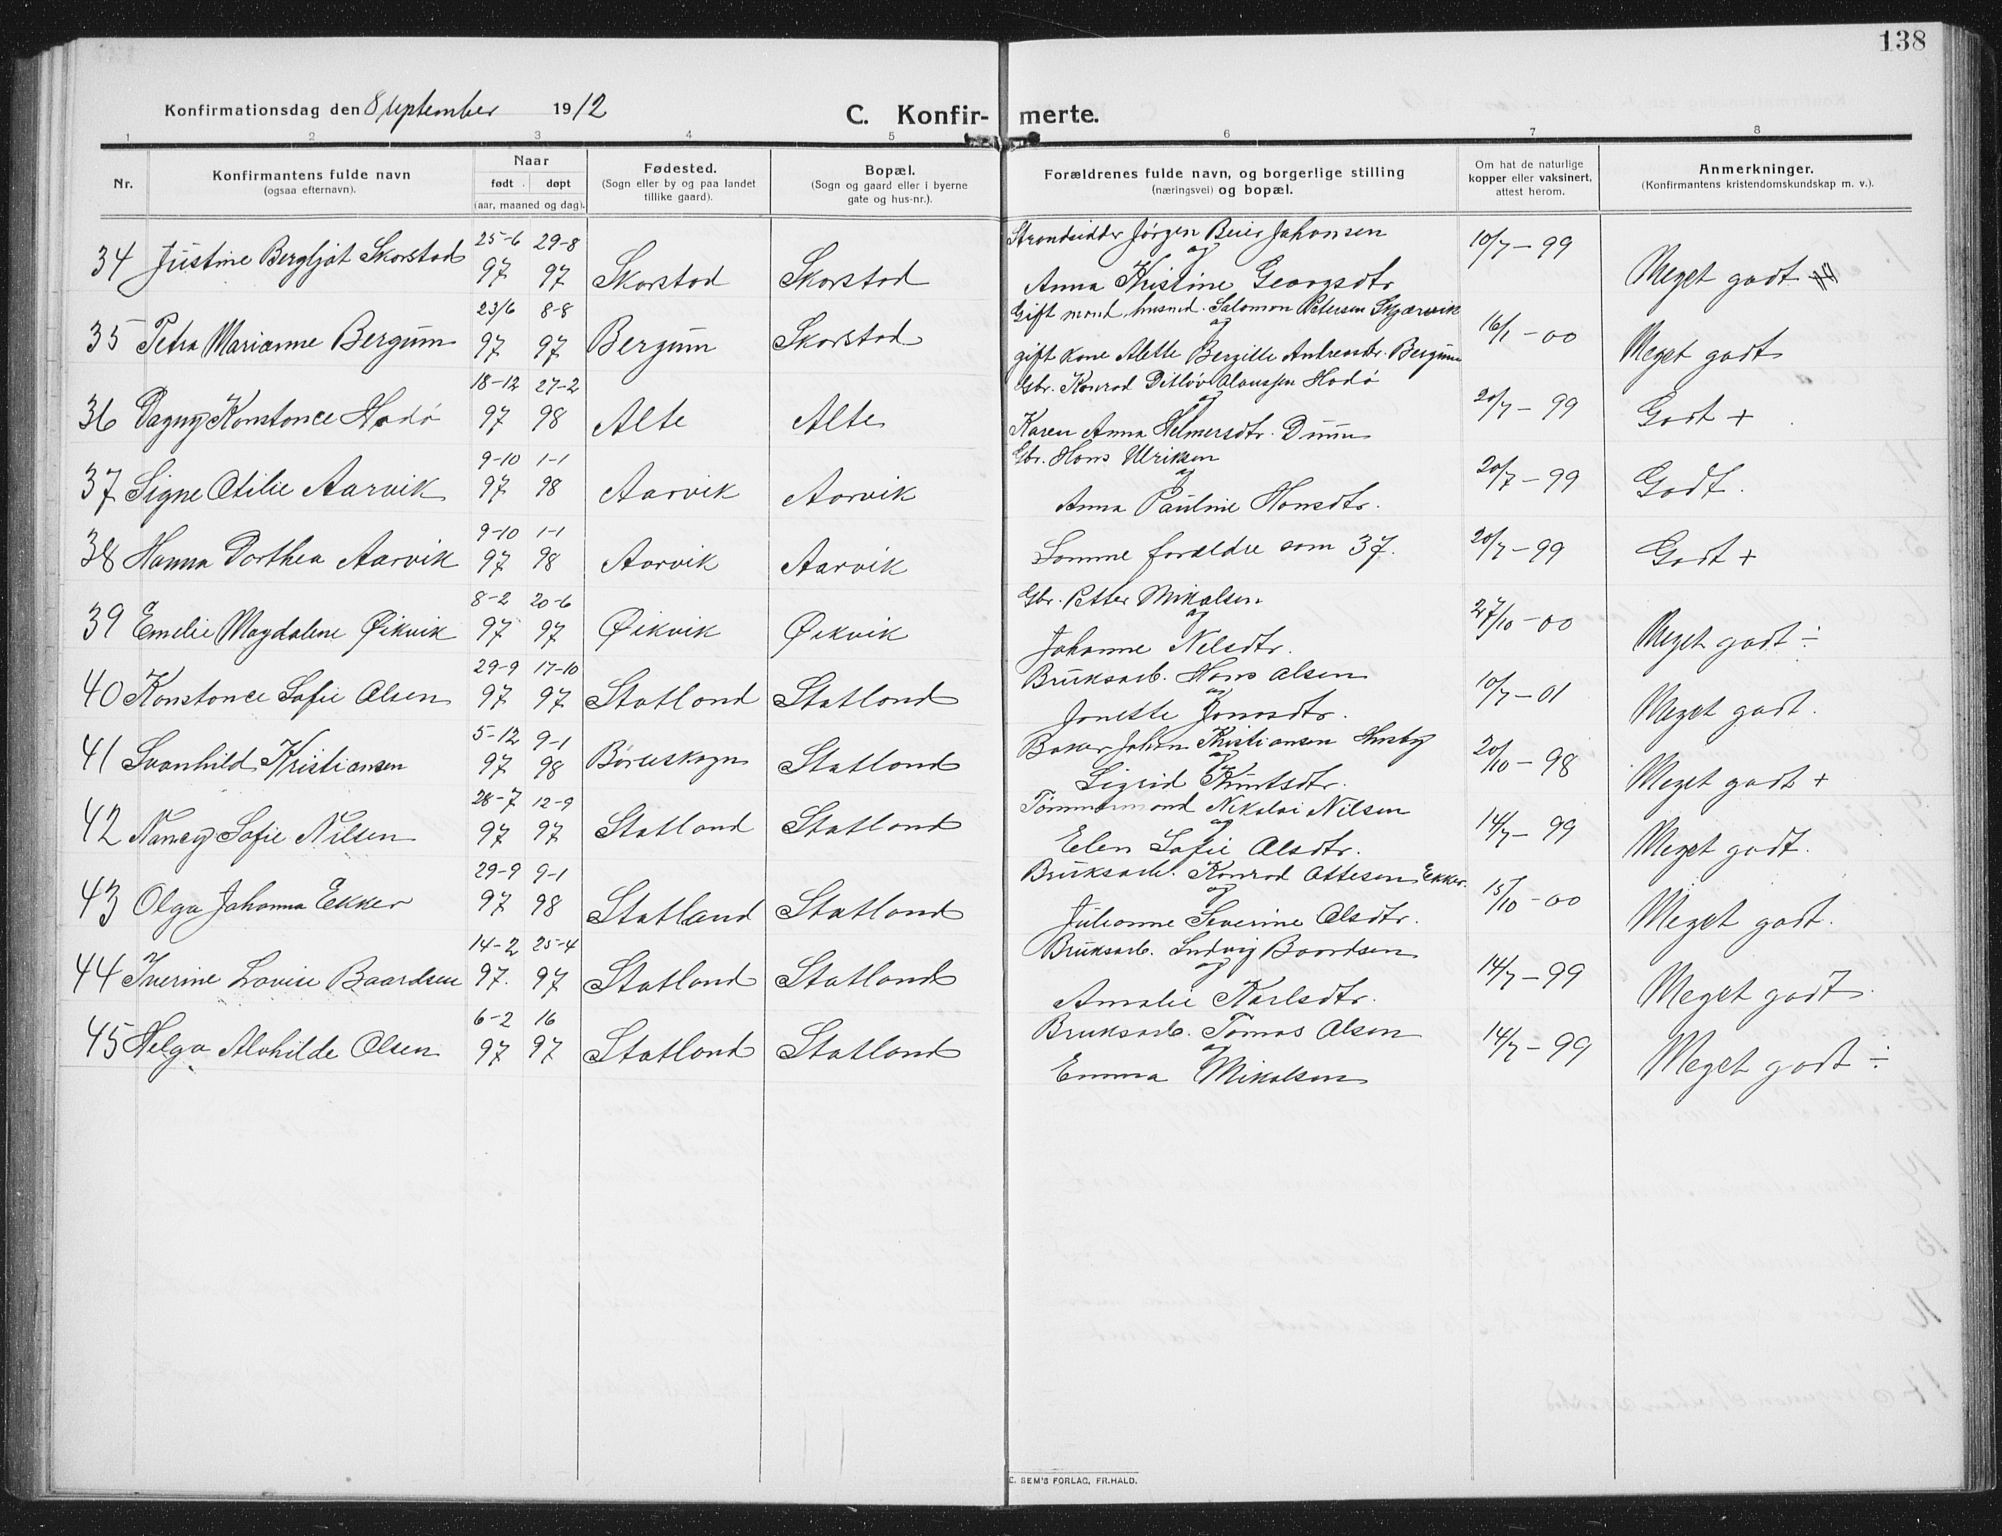 138
Konfirmationsdag den 8 september 1912
C. Konfir- merte.
1 2 3 4 5 6 7 8
Nr.
Konfirmantens fulde navn
(ogsaa efternavn).
Naar
født døpt
(aar, maaned og dag).
Fødested.
(Sogn eller by og paa landet
tillike gaard).
Bopæl.
(Sogn og gaard eller i byerne
gate og hus-nr.).
Forældrenes fulde navn, og borgerlige stilling
(næringsvei) og bopæl.
Om hat de naturlige
kopper eller vaksinert,
attest herom.
Anmerkninger.
(Konfirmantens kristendomskundskap m. v.).
25-6 29-8 Strandsidder Jørgen Beier Johansen
34 Justine Bergljot Skorstad 97 97 Skorstad Skorstad og 10/7-99 Meget godt
Anna Kristine Georgsdtr
23/6 8-8 Gift mand, husmd. Salomon Petersen Skjærvik
35 Petra Marianne Bergum 97 97 Bergum Skorstad og 16/1-00 Meget godt
gift kone Alette Bergitte Andreasdtr. Bergum
18-12 27-2 Gbr. Konrad Ditløv Claussen Hodø
36 Dagny Konstance Hodø 97 98 Alte Alte og 20/7-99 Godt +
Karen Anna Helmersdtr. Duun
9-10 1-1 Gbr. Hans Ulriksen
37 Signe Otilie Aarvik 97 98 Aarvik Aarvik og 20/7-99 Godt.
Anna Pauline Hansdtr.
9-10 1-1
38 Hanna Dorthea Aarvik 97 98 Aarvik Aarvik Samme forældre som 37. 20/7-99 Godt +
8-2 20-6 Gbr. Petter Mikalsen
39 Emelie Magdalene Øikvik 97 97 Øikvik Øikvik og 27/10-00 Meget godt ÷
Johanne Nelsdtr.
29-9 17-10 Bruksarb. Hans Olsen
40 Konstance Sofie Olsen 97 97 Statland Statland og 10/7-01 Meget godt.
Jonette Jonasdtr.
5-12 9-1 Baker Johan Kristiansen Husby
41 Svanhild Kristiansen 97 98 Statland og 20/10-98 Meget godt +
Sigrid Knutsdtr.
28-7 12-9 Tømmermand Nikolai Nilsen
42 Nancy Sofie Nilsen 97 97 Statland Statland og 14/7-99 Meget godt.
Elen Sofie Olsdtr.
29-9 9-1 Bruksarb. Konrad Ottesen Ekker.
43 Olga Johanna Ekker 97 98 Statland Statland og 15/10-00 Meget godt.
Julianne Severine Olsdtr.
14-2 25-4 Bruksarb. Ludvig Baardsen
44 Iverine Lovise Baardsen 97. 97 Statland Statland og 14/7-99 Meget godt.
Amalie Karlsdtr.
6-2 16 Bruksarb. Tomas Olsen
45 Helga Alvhilde Olsen 97 97 Statland Statland og 14/7-99 Meget godt ÷
Emma Mikalsen
E. SEM'S FORLAG, FR.HALD.